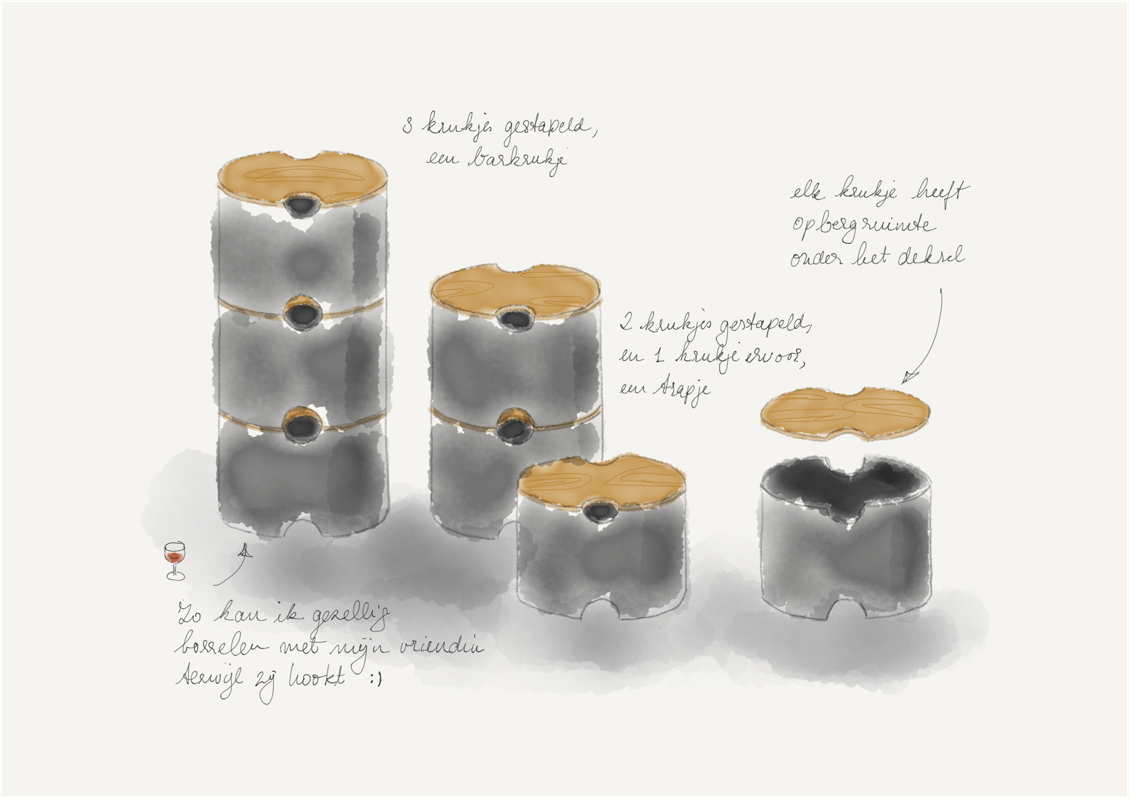 3 krukjes gestapeld,
een barkrukje
elk krukje heeft
opbergruimte
onder het deksel
2 krukjes gestapeld,
en 1 krukje ervoor,
een trapje
Zo kan ik gezellig
borrelen met mijn vriendin
terwijl zij kookt :)